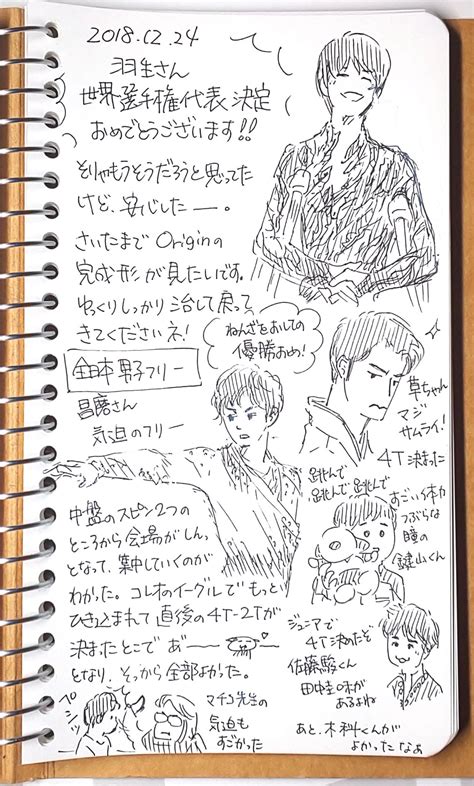 2018.12.24
羽生さん
世界選手権代表決定
おめでとうございます!!
そりゃもうそうだろうと思ってた
けど、安心したー。
さいたまで Originの
完成形が見たいです。
ゆっくりしっかり治して戻って
きてくださいネ!
全日本男子フリー
昌磨さん
気迫のフリー
ねんざをおしての
優勝おめ!
草ちゃん
マジ
サムライ!
4T決まった
中盤のスピン2つの
ところから会場がしん、
となって、集中していくのが
わかった。コレオのイーグルでもっと
ひき込まれて直後の4T-2Tが
決まったとこで あ゛ー
となり、そっから全部よかった。
跳んで
跳んで跳んで
すごい体力
つぶらな
瞳の
鍵山くん
ジュニアで
4T決めたぞ
佐藤駿くん
田中圭味が
あるよね
マチコ先生の
気迫も
すごかった
あと、木科くんが
よかったなぁ